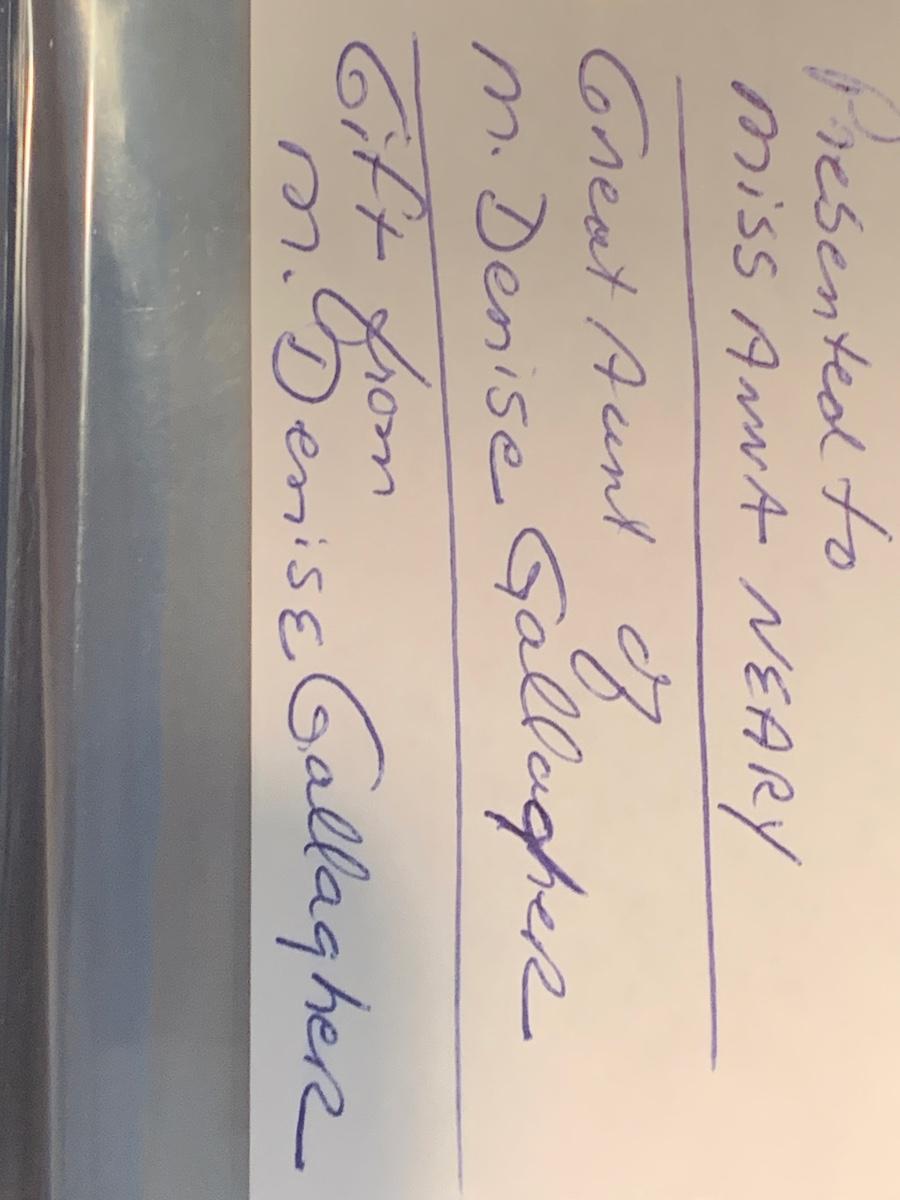 Presented to
Miss ANNA NEARY
Great Aunt of
M. Denise Gallagher
Gift from
M. Denise Gallagher